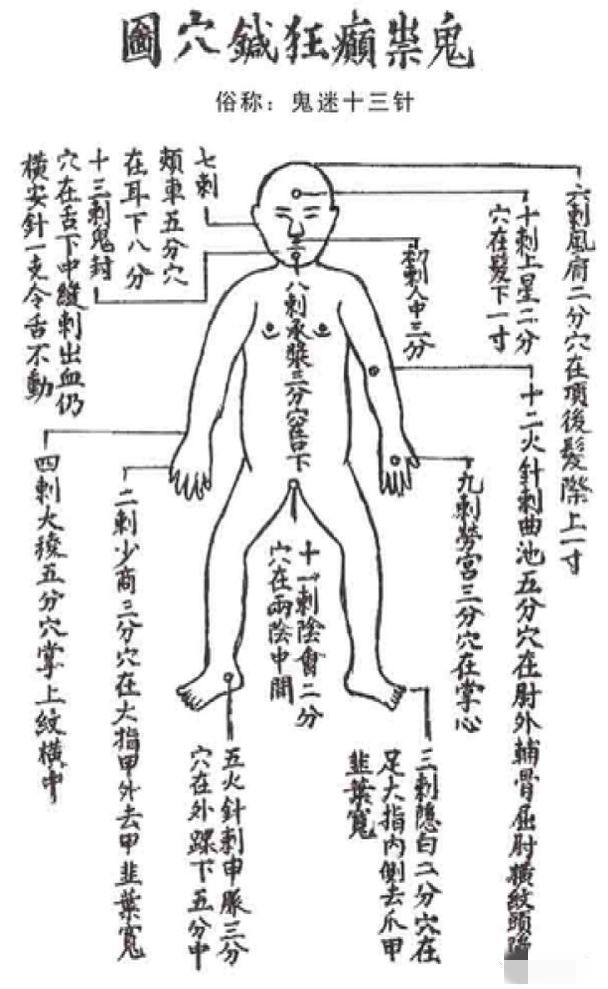 鬼祟癲狂鍼穴圖
俗称：鬼迷十三针
六刺風府二分穴在項後髮際上一寸
十刺上星二分
穴在髮下一寸
初刺人中三分
十二火針刺曲池五分穴在肘外輔骨屈肘橫紋頭
九刺勞宮三分穴在掌心
八刺承漿三分穴唇下
十一刺陰會二分
穴在兩陰中間
三刺隱白二分穴在
足大指內側去爪甲
韭葉寬
五火針刺申脈三分
穴在外踝下五分中
七刺
頰車五分穴
在耳下八分
十三刺鬼封
穴在舌下中縫刺出血仍
橫安針一支令舌不動
二刺少商三分穴在大指甲外去甲韭葉寬
四刺大稜五分穴掌上紋橫中